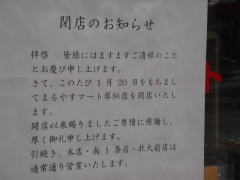 閉店のお知らせ
拝啓　皆様にはますますご清祥のこと
とお慶び申し上げます。
さて、このたび1月20日をもちまし
てまるやすマート琴似店を閉店いたし
ます。
開店以来賜りましたご厚情に感謝し、
厚く御礼申し上げます。
引続き、本店・南1条店・北大前店は
通常通り営業いたします。